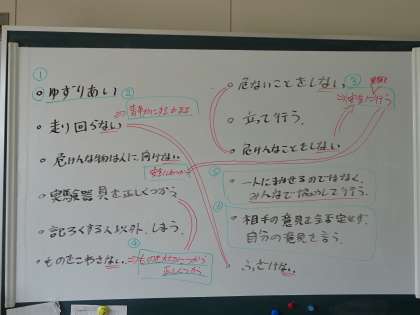 ①
ゆずりあい
②
走り回らない
危けんな物は人に向けない
実験器具を正しくつかう
記ろくする人以外、しまう。
ものをこわさない
④
正しくつかう
危ないことをしない
③
に行う
立って行う
危けんなことをしない
一人にまかせるのではなく、
みんなで協力して行う。
相手の意見を否定せず、
自分の意見を言う。
ふざけない